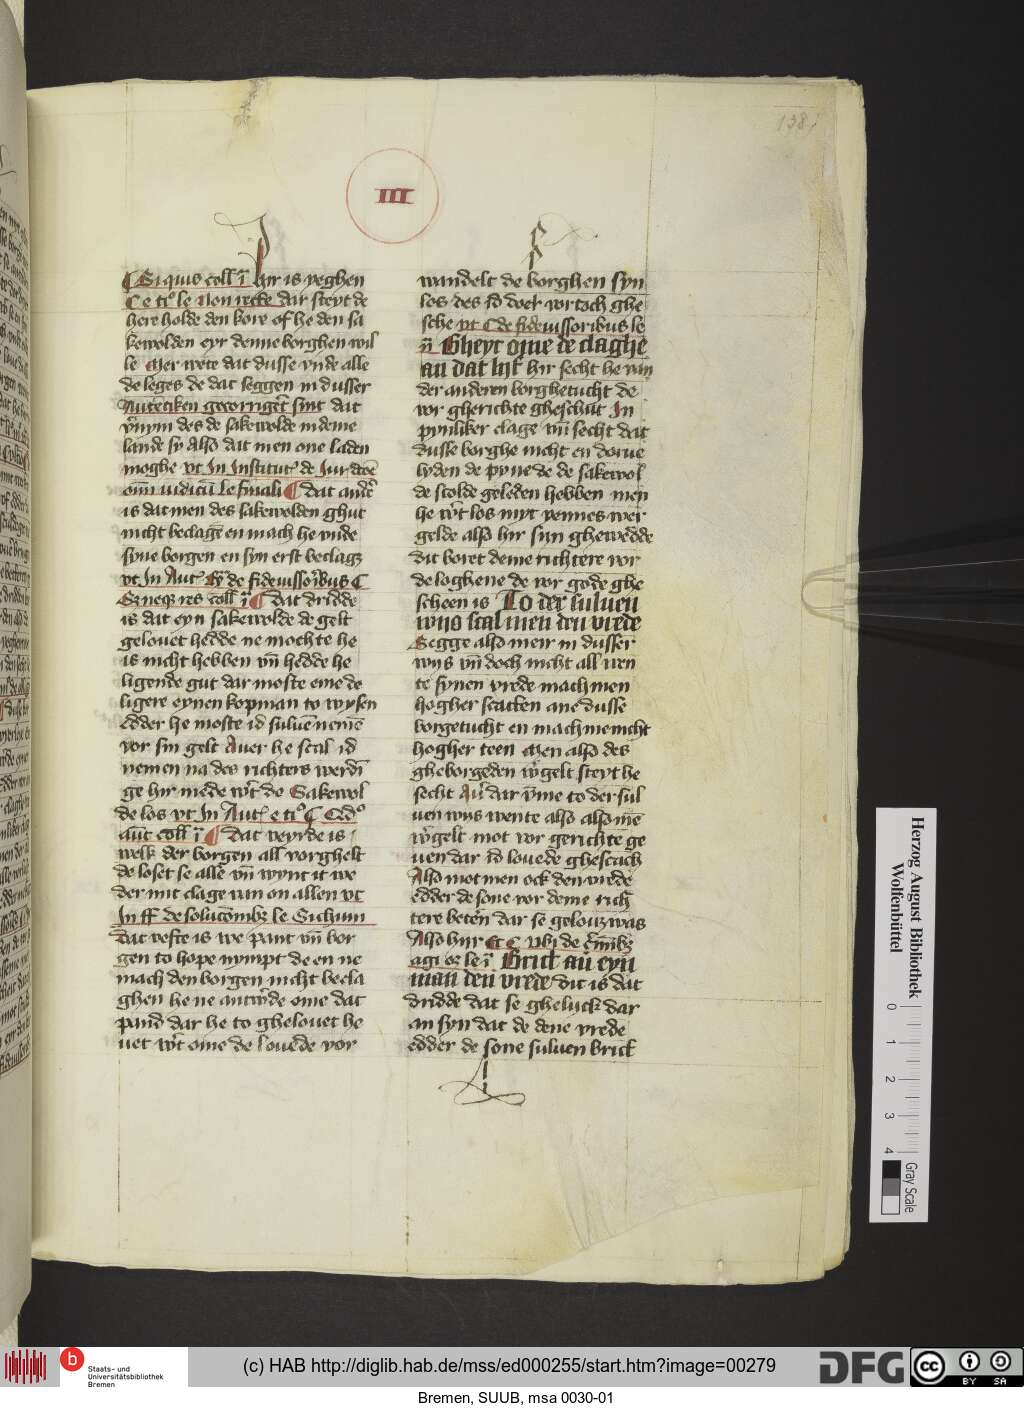 138
III
Si quis coll i hir is yeghen
C e ti le Non recte dar steyt de
here holde den kore of he den sa
kewolden eyr denne borghen wil
le Mer wete dat dusse vnde alle
de leges de dat seggen in dusser
Autētiken gecorrigērt sint dat
des de sakewolde in deme
lande sy also dat men one laden
moghe vt In Institut de
dat
is dat men des sakewolden ghut
nicht beclagē en mach he vnde
syne borgen en syn erst beclagꝫ
vt In Aut de fideiussoribus C
res coll dat dridde
is dat eyn sakewolde de gelt
gelouet hedde ne mochte he
is nicht hebben vn̄ hedde he
ligende gut dar moste eme de
ligere eynen kopman to wysen
edder he moste id suluē nemē
vor sin gelt Auer he scal id
nemen na des richters werdī
ge hir mede wͤt de Sakewol
de los vt In Aut e ti C
coll dat veyrde is
welk der borgen all vorghelt
de loset se alle vn̄ wynt it we
der mit clage van on allen vt
In ff de le Si chum
dat vefte is we pant vn̄ bor
gen to hope nympt de en ne
mach den borgen nicht becla
ghen he ne antwͤde ome dat
pand dar he to ghelouet he
uet wͤt ome de louede vor
wandelt de borghen syn
los des id doer vortoch ghe
sche vt C de fideiussoribus le
Gheyt ome de claghe
an dat lyf hir secht he van
der anderen borghetucht de
vor gherichte gheschut In
pynliker clage vn̄ secht dat
dusse borghe nicht en dorue
lyden de pyne de de sakewol
de scolde geleden hebben men
he wͤt los myt pennes wer
gelde also hir sun ghewedde
dit boret deme richtere vor
de loghene de vor gode ghe
scheen is To der suluen
wijs scal men den vrede
Segge also meir in dusser
wijs vn̄ doch nicht all uen
te synen vrede mach men
hogher scatten ane dusse
borgetucht en mach me nicht
hogher teen Men also des
gheborgeden wͤgelt steyt he
secht Au dar vme to der sul
uen wijs wente also also mē
wͤgelt mot vor gerichte ge
uen dar id louede gheschuch
Also mot men ock den vrede
edder de sone vor deme rich
tere betēn dar se gelouꝫ was
Also hijr de
le Brick an eyn
man den vrede dit is dat
dridde dat se ghelyck dar
an syn dat de dene vrede
edder de sone suluen brick
Herzog August Bibliothek
Wolfenbüttel
0
1
2
3
4
Gray Scale
b
Staats- und
Universitätsbibliothek
Bremen
(c) HAB http://diglib.hab.de/mss/ed000255/start.htm?image=00279
DFG
cc
BY SA
Bremen, SUUB, msa 0030-01